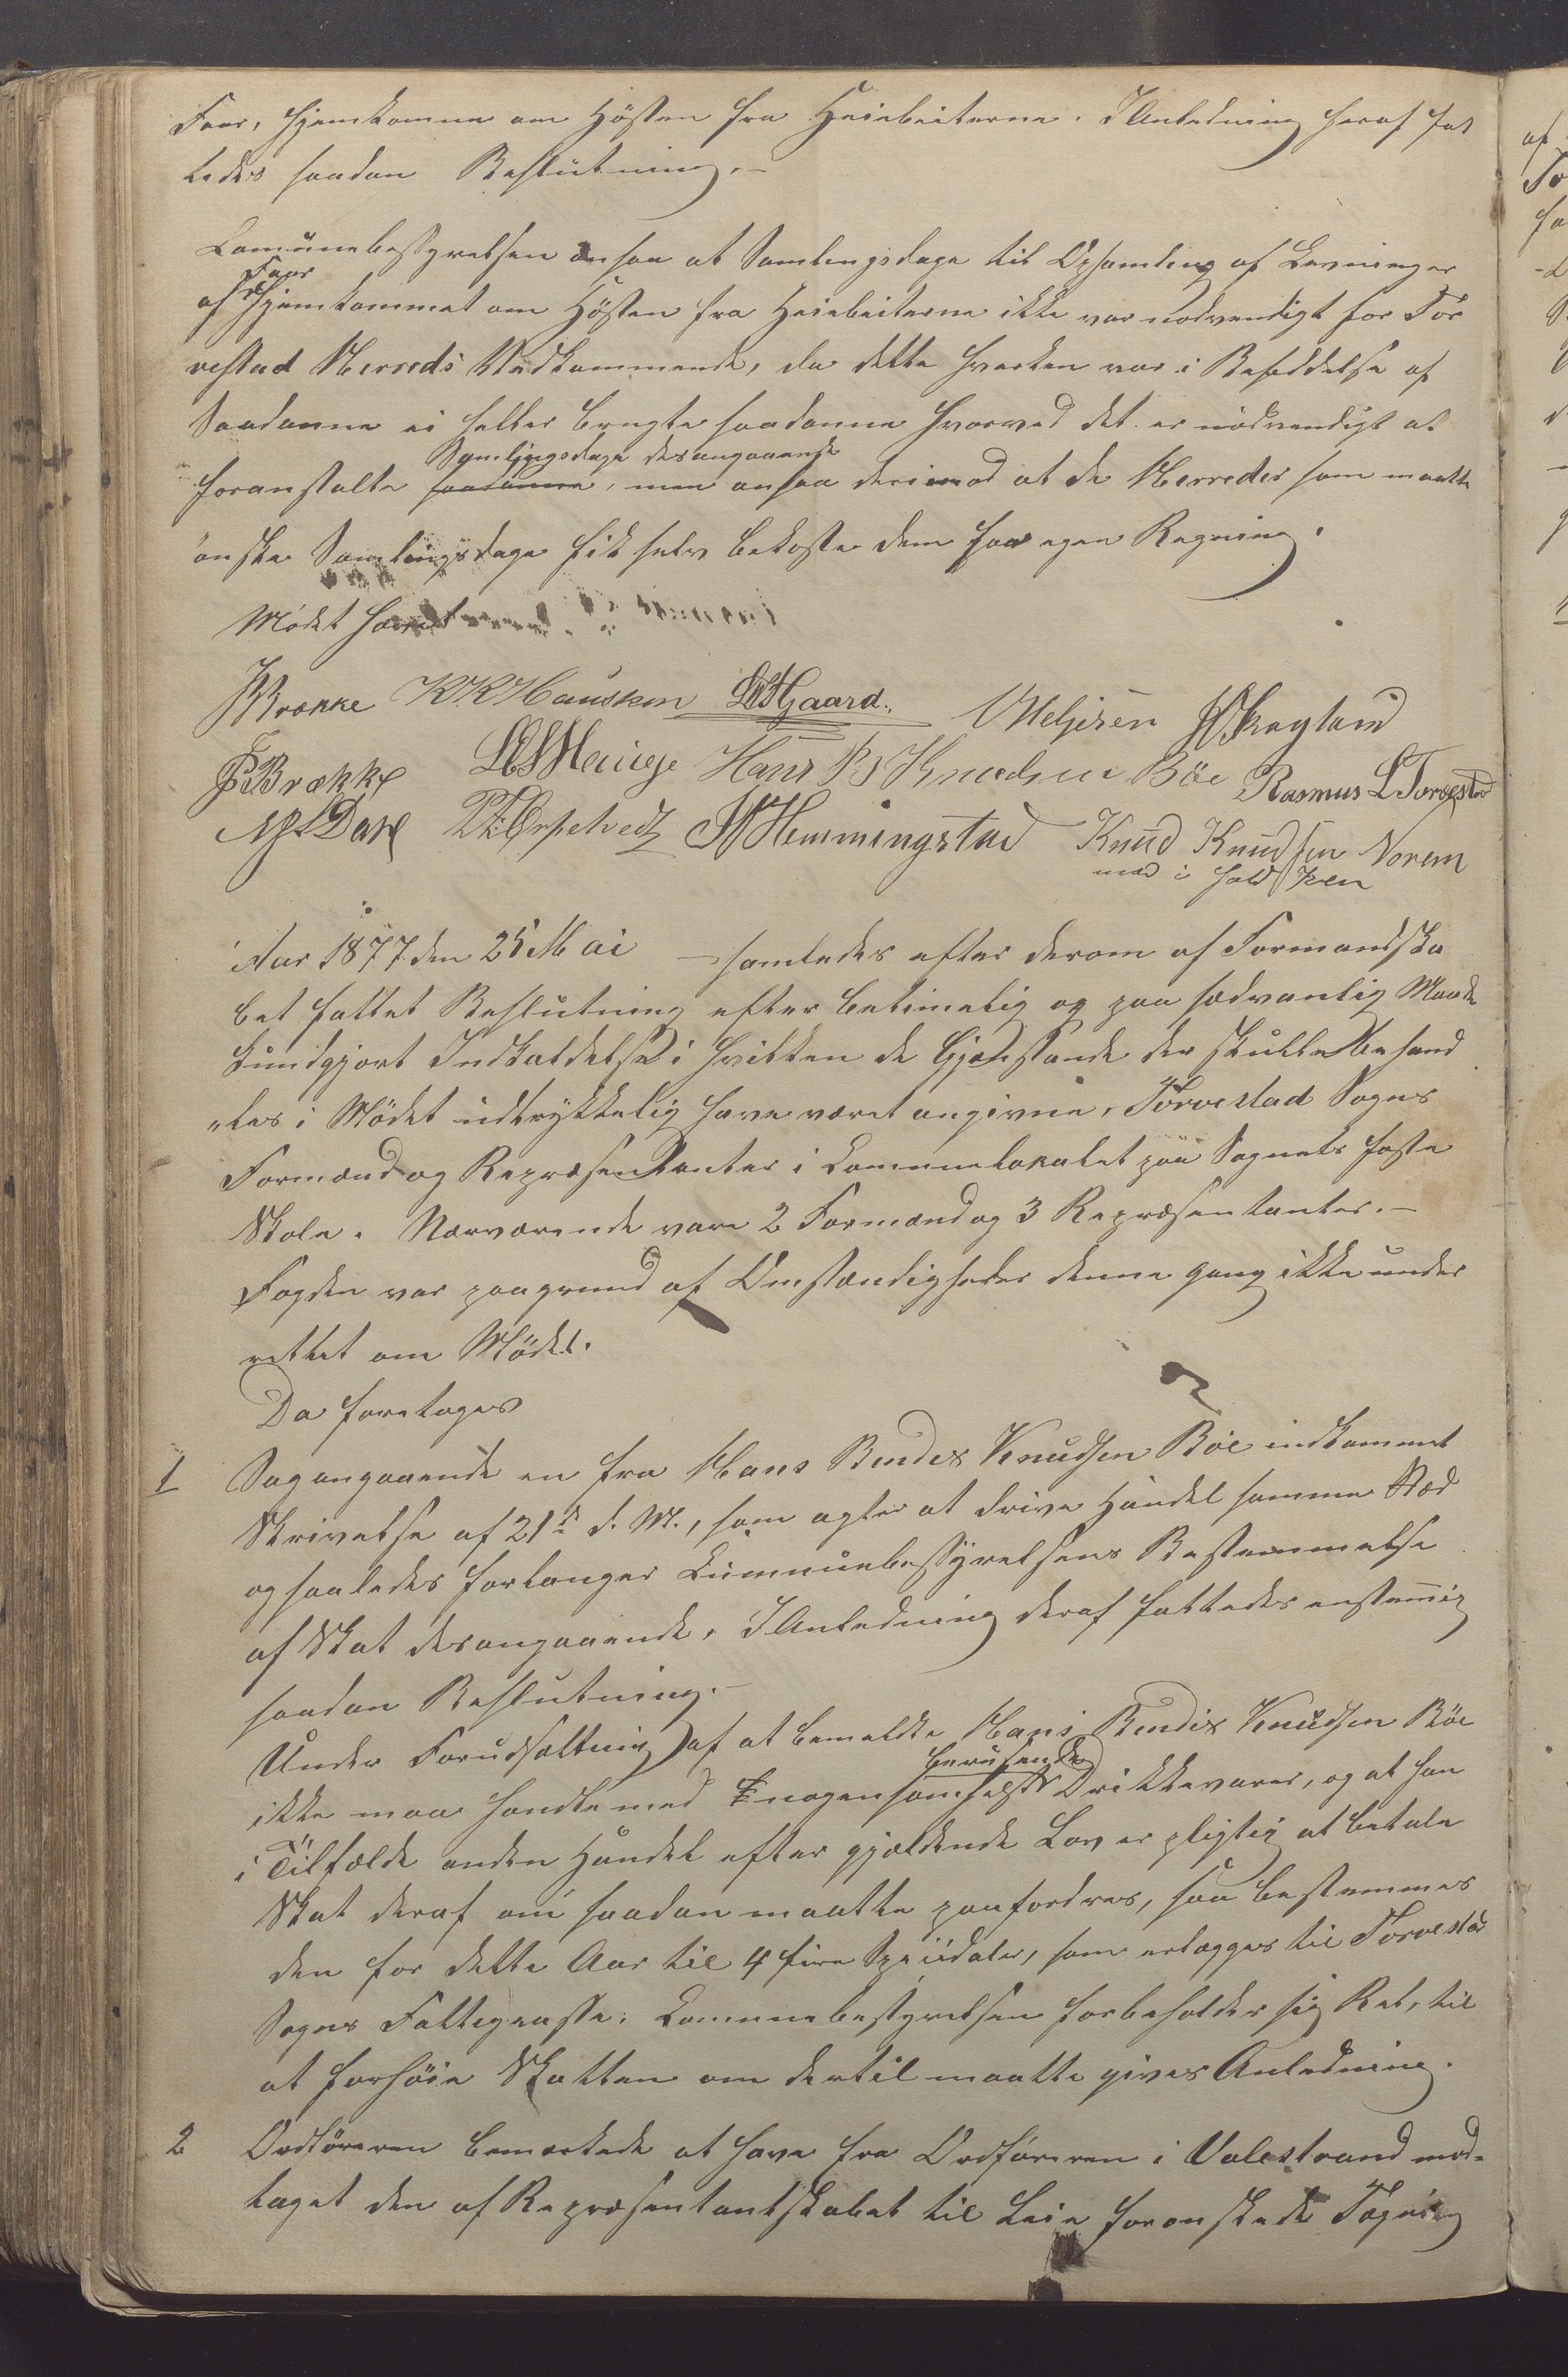 Faar, hjemkomne om Høsten fra Heiebeiterne. I Anledning heraf fat
tedes saadan Beslutning.–
Comünebestyrelsen ansaa at Samlingsdage til Opsamling af Levninger
Faar
af hjemkommet om Høsten fra Heiebeiterne ikke var nødvendigt for Tor
vestad Herreds Vedkommende, da dette hverken var i Besiddelse af
Saadanne ei heller brugte saadanne hvorved det er nødvendigt at
Samlingsdage desangaaende
foranstalte saadanne, men ansaa derimod at de Herreder som maatte
ønske Samlingsdage fik selv bekoste dem for egen Regning.
Mødet hævet
JBrække KKHausken LHGaard. OHelgesen Skeyland
Brække LHHauge Hans B Knudsen Böe Rasmus L Torvestad
Dale Erpetvedt Hemmingstad Knud Knudsen Norem
med i hold Pen
Aar 1877 den 25 Mai – samledes efter derom af Formandska
bet fattet Beslutning efter betimelig og paa sædvanlig Maade
kundgjort Indkaldelse i hvilken de Gjenstande der skulle behand
„les i Mødet udtrykkelig have været angivne, Torvestad Sogns
Formænd og Repræsentanter i Communelokalet paa Sognets faste
Skole. Nærværende vare 2 Formænd og 3 Repræsentanter.–
Fogden var paagrund af Omstændigheder denne gang ikke under
rettet om Mødet.
Da foretoges
1 Sag angaaende en fra Hans Bendix Knudsen Böe indkommet
Skrivelse af 21de d. M., som agter at drive Handel samme Sted
og saaledes forlanger Kummunebestyrelsens Bestemmelse
af Skat desangaaende. I Anledning deraf fattedes enstemig
saadan Beslutning.–
Under Forudsættning af at bemeldte Hans Bendix Knudsen Böe
berusende
ikke maa handle med nogensomhelst Drikkevarer, og at han
i Tilfælde anden Handel efter gjældende Lov er pligtig at betale
Skat deraf om saadan maatte paafordres, saa bestemmes
den for dette Aar til 4 fire Speciedaler, som erlægges til Torvestad
Sogns Fattigcasse. Communebestyrelsen forbeholder sig Ret, til
at forhøie Skatten om dertil maatte gives Anledning.
2 Ordføreren bemærkede at have fra Ordføreren i Valestrand mod-
taget den af Repræsentantskabet til Leie forønskede Tegning